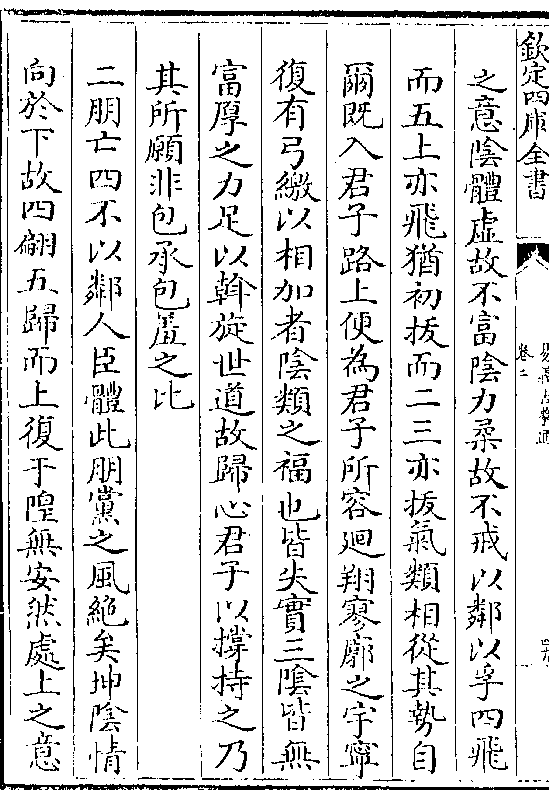 欽定四庫全書
卷二
之意陰體虛故不富陰力柔故不戒以鄰以孚四飛
而五上亦飛猶初拔而二三亦拔氣類相從其勢自
爾既入君子路上便為君子所容廻翔寥廓之宇寜
復有弓繳以相加者陰類之福也皆失實三隂皆無
富厚之力足以斡旋世道故歸心君子以撐持之乃
其所願非包承包羞之比
二朋亡四不以鄰人臣體此朋黨之風絶矣坤陰情
向於下故四翩五歸而上復于隍無安然處上之意